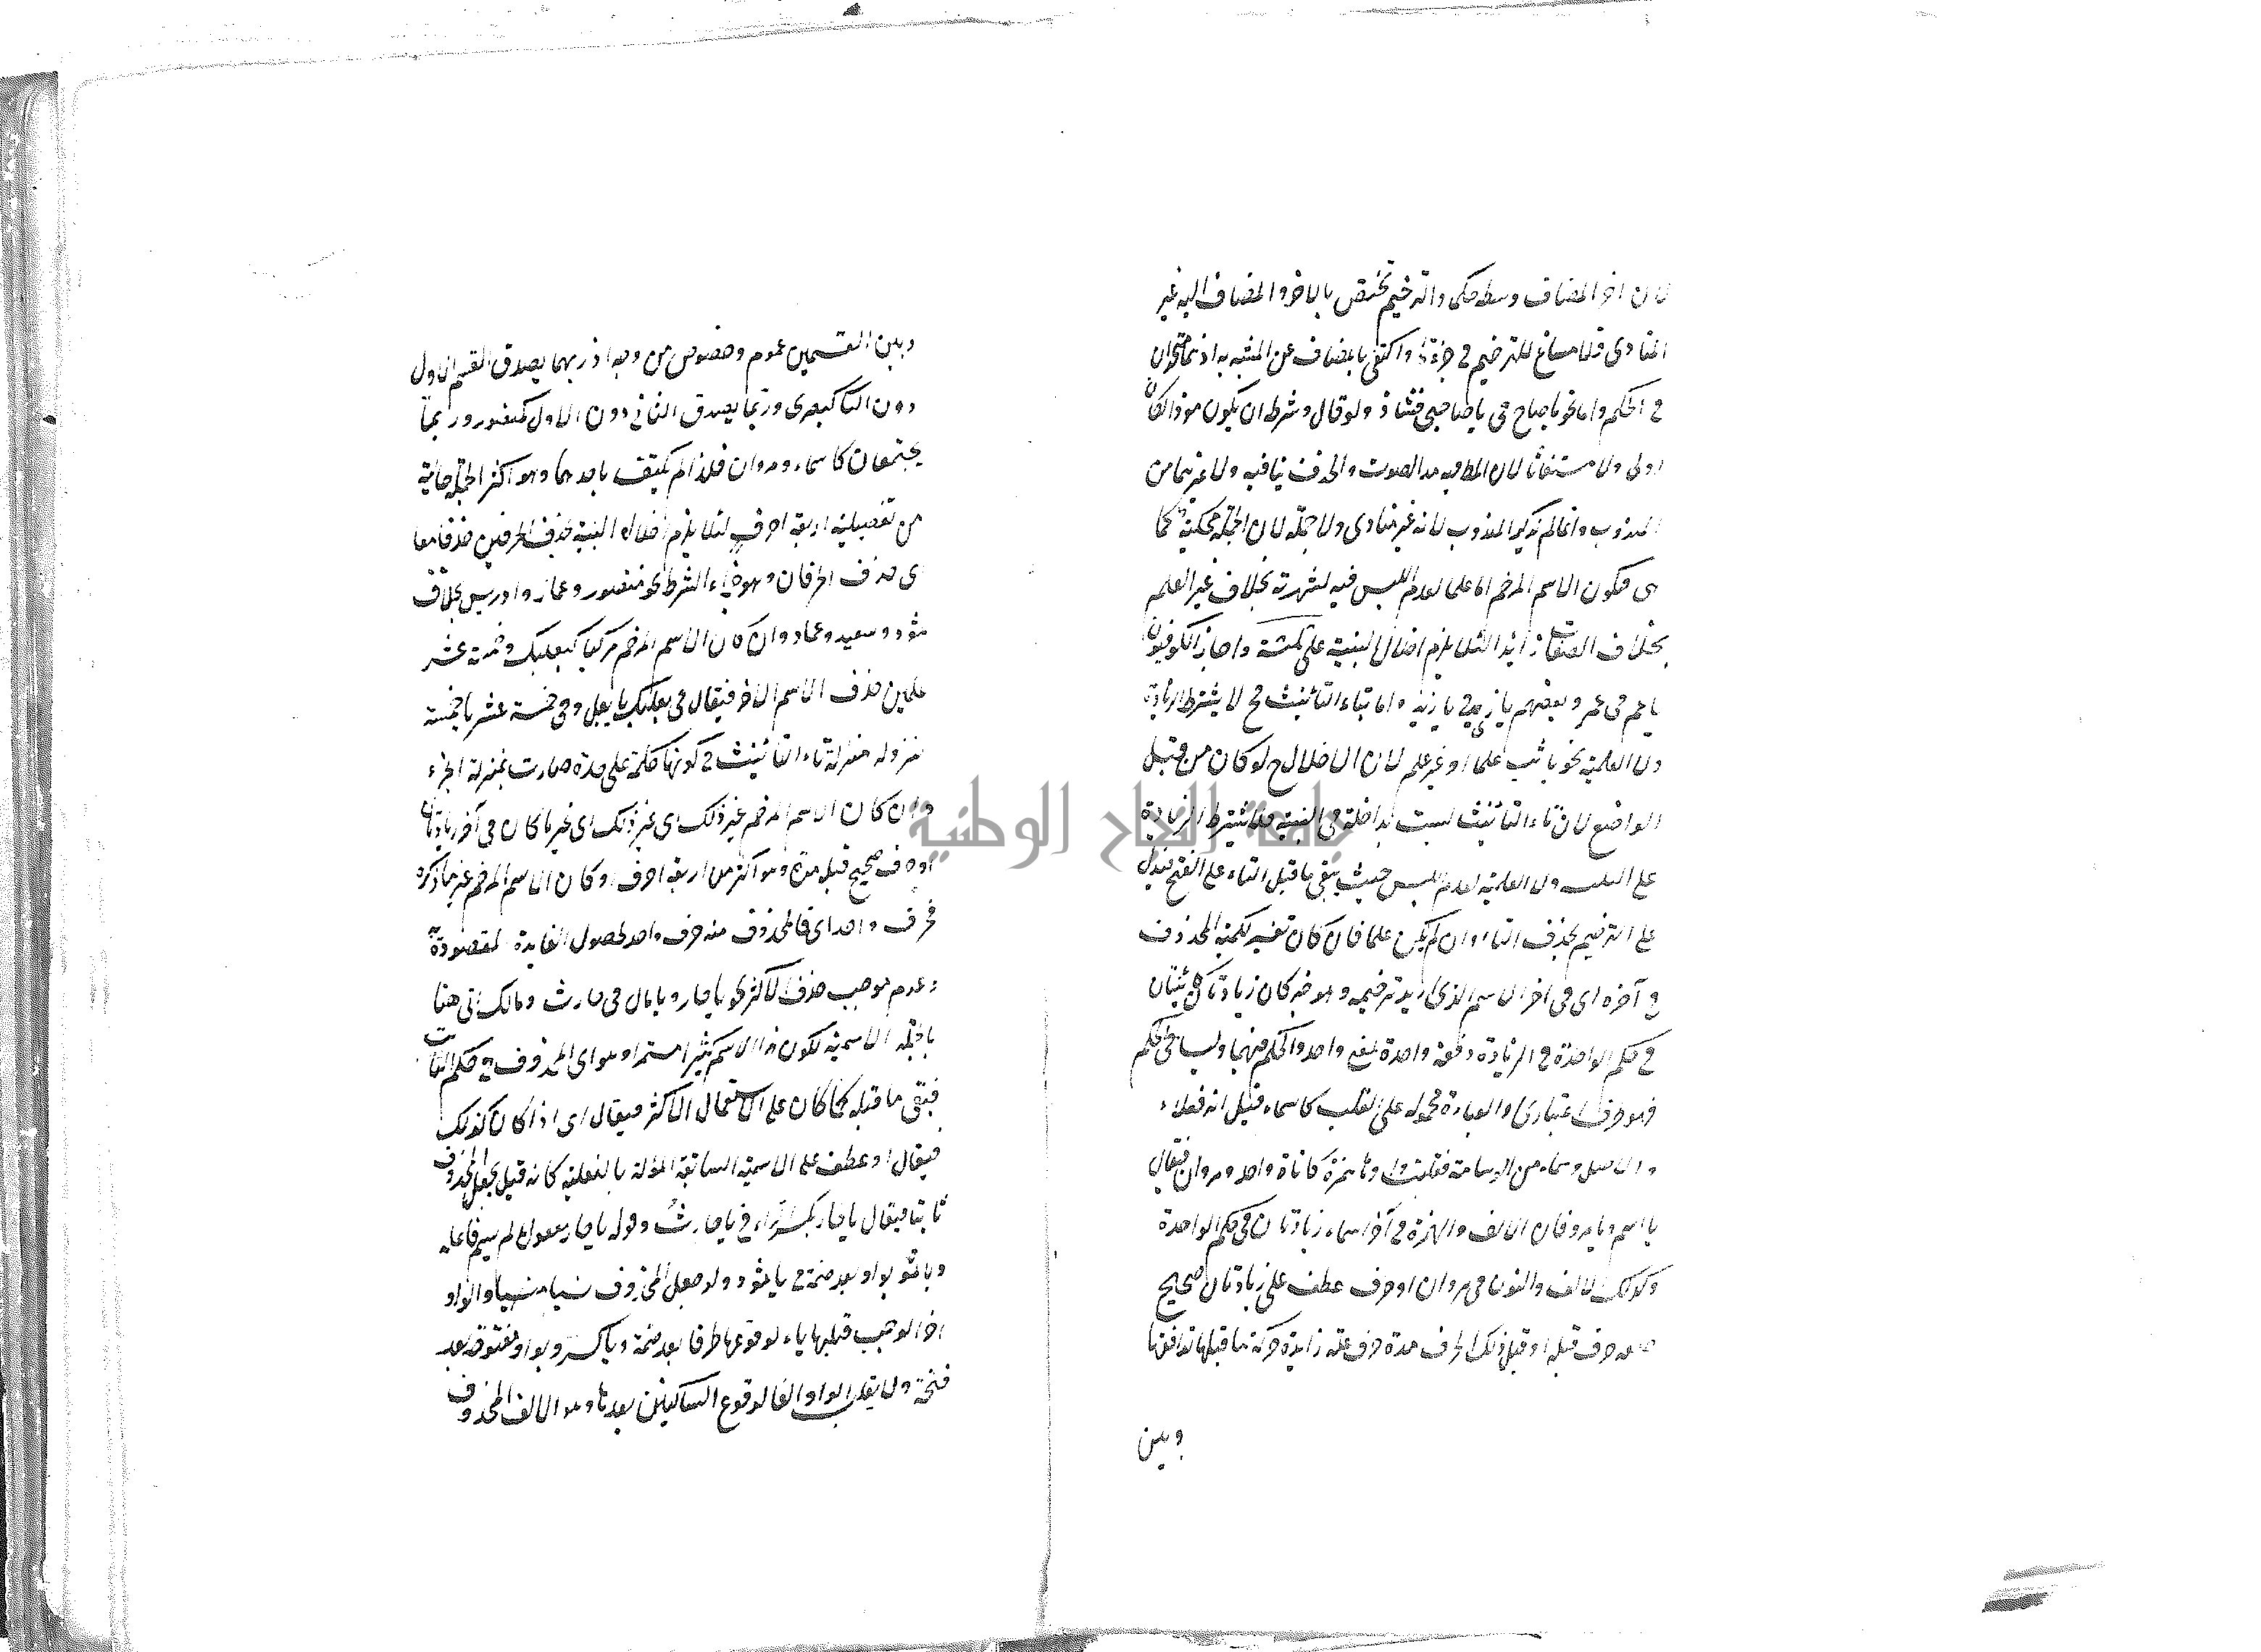 لان اخر المضاف وسط حكما والترخيم تختص بالاخر والمضاف اليه غير
المنادى فلا مساغ للترخيم في جزئه واكتفى بالمضاف عن المشبه به اذ هما متحدان
في الحكم واما نحو يا صاح في يا صاحبي فشاذ ولو قال وشرط ان يكون مفردا لكان
اولى ولا مستغاثا لان المط فيه مد الصوت والحذف ينافيه ولا غيرهما من
المندوب وانما لم يذكر المندوب لانه غير منادى ولا جملة لان الجملة محكية كما
هي فيكون الاسم المرخم اما علما لعدم اللبس فيه لشهرته بخلاف غير العلم
بخلاف الصفات زايدا لئلا يلزم اخلال البنية على ثلثة واجاز الكوفيون
يا عم في عمر وبعضهم يا زي في يا زيد واما بتاء التانيث فح لا يشترط الزيادة
ولا العلمية نحو يا ثب علما او غير علم لان الاخلال ح لو كان من قبل
الواضع لان تاء التانيث ليست بداخلة في البنية فلا يشترط الزيادة
على الثلث ولا العلمية لعدم اللبس حيث يبقى ما قبل التاء على الفتح فيدل
على الترخيم بحذف التاء وان لم يكن علما فان كان تفسير لكمية المحذوف
في آخره اى في اخر الاسم الذى اريد ترخيمه وهو خبر كان زيادتان كائنتان
في حكم الواحدة في الزيادة دفعة واحدة لمعنى واحد والحكم فيهما وليسا في حكم
فهو حرف اعتبارى والعبارة محمولة على القلب كاسماء قيل انه فعلاء
والاصل وسماء من الوسامة فقلبت واوها همزة كاناة واحد ومروان فيقال
يا اسم ويا مرو فان الالف والهمزة في آخر اسماء زيادتان في حكم الواحدة
وكذلك الالف والنون في مروان او حرف عطف على زيادتان صحيح
صفة حرف قبله اى قبل ذلك الحرف مدة حرف علة زايدة حركة ما قبلها توافقها
وبين
وبين القسمين عموم وخصوص من وجه اذ ربما يصدق القسم الاول
دون الثا كبصرى وربما يصدق الثاني دون الاول كمنصور وربما
يجتمعان كاسماء ومروان فلذا لم يكتف باحدهما وهو اكثر الجملة حالية
من تفصيلية اربعة احرف لئلا يلزم اخلال البنية بحذف الحرفين حذفا معا
اى حذف الحرفان وهو جزاء الشرط نحو منصور وعمار وادريس بخلاف
ثمود وسعيد وعماد وان كان الاسم المرخم مركبا كبعلبك وخمسة عشر
علمين حذف الاسم الاخر فيقال في بعلبك يا بعل وفي خمسة عشر يا خمسة
لنزوله منزلة تاء التانيث في كونها كلمة على حدة صارت بمنزلة الجزء
وان كان الاسم المرخم غير ذلك اى غير ذلك اى غير ما كان في آخر زيادتان
او حرف صحيح قبله مدة وهو اكثر من اربعة احرف او كان الاسم المرخم غير ما ذكر
فحرف واحد اى فالمحذوف منه حرف واحد لحصول الفايدة المقصودة
وعدم موجب حذف الاكثر نحو يا حار ويا مال في حارث ومالك اتى هنا
بالجملة الاسمية لكون هذا الاسم كثيرا مستمرا وهو اى المحذوف في حكم الثابت
فيبقى ما قبله كما كان على الاستعمال الاكثر فيقال اى اذا كان كذلك
فيقال او عطف على الاسمية السابقة المؤلة بالفعلية كانه قيل يجعل المحذوف
ثابتا فيقال يا حار بكسر الراء في يا حارث وقوله يا حار مفعول لم يسم فاعله
ويا ثمو بواو بعد ضمة في يا ثمود ولو جعل المحذوف نسيا منسيا والواو
اخرا لوجب قبلها ياء لوقوعها طرفا بعد ضمة ويا كرو بواو مفتوحة بعد
فتحة ولا يقلب الواو الفا لوقوع الساكنين بعدها وهو الالف المحذوف